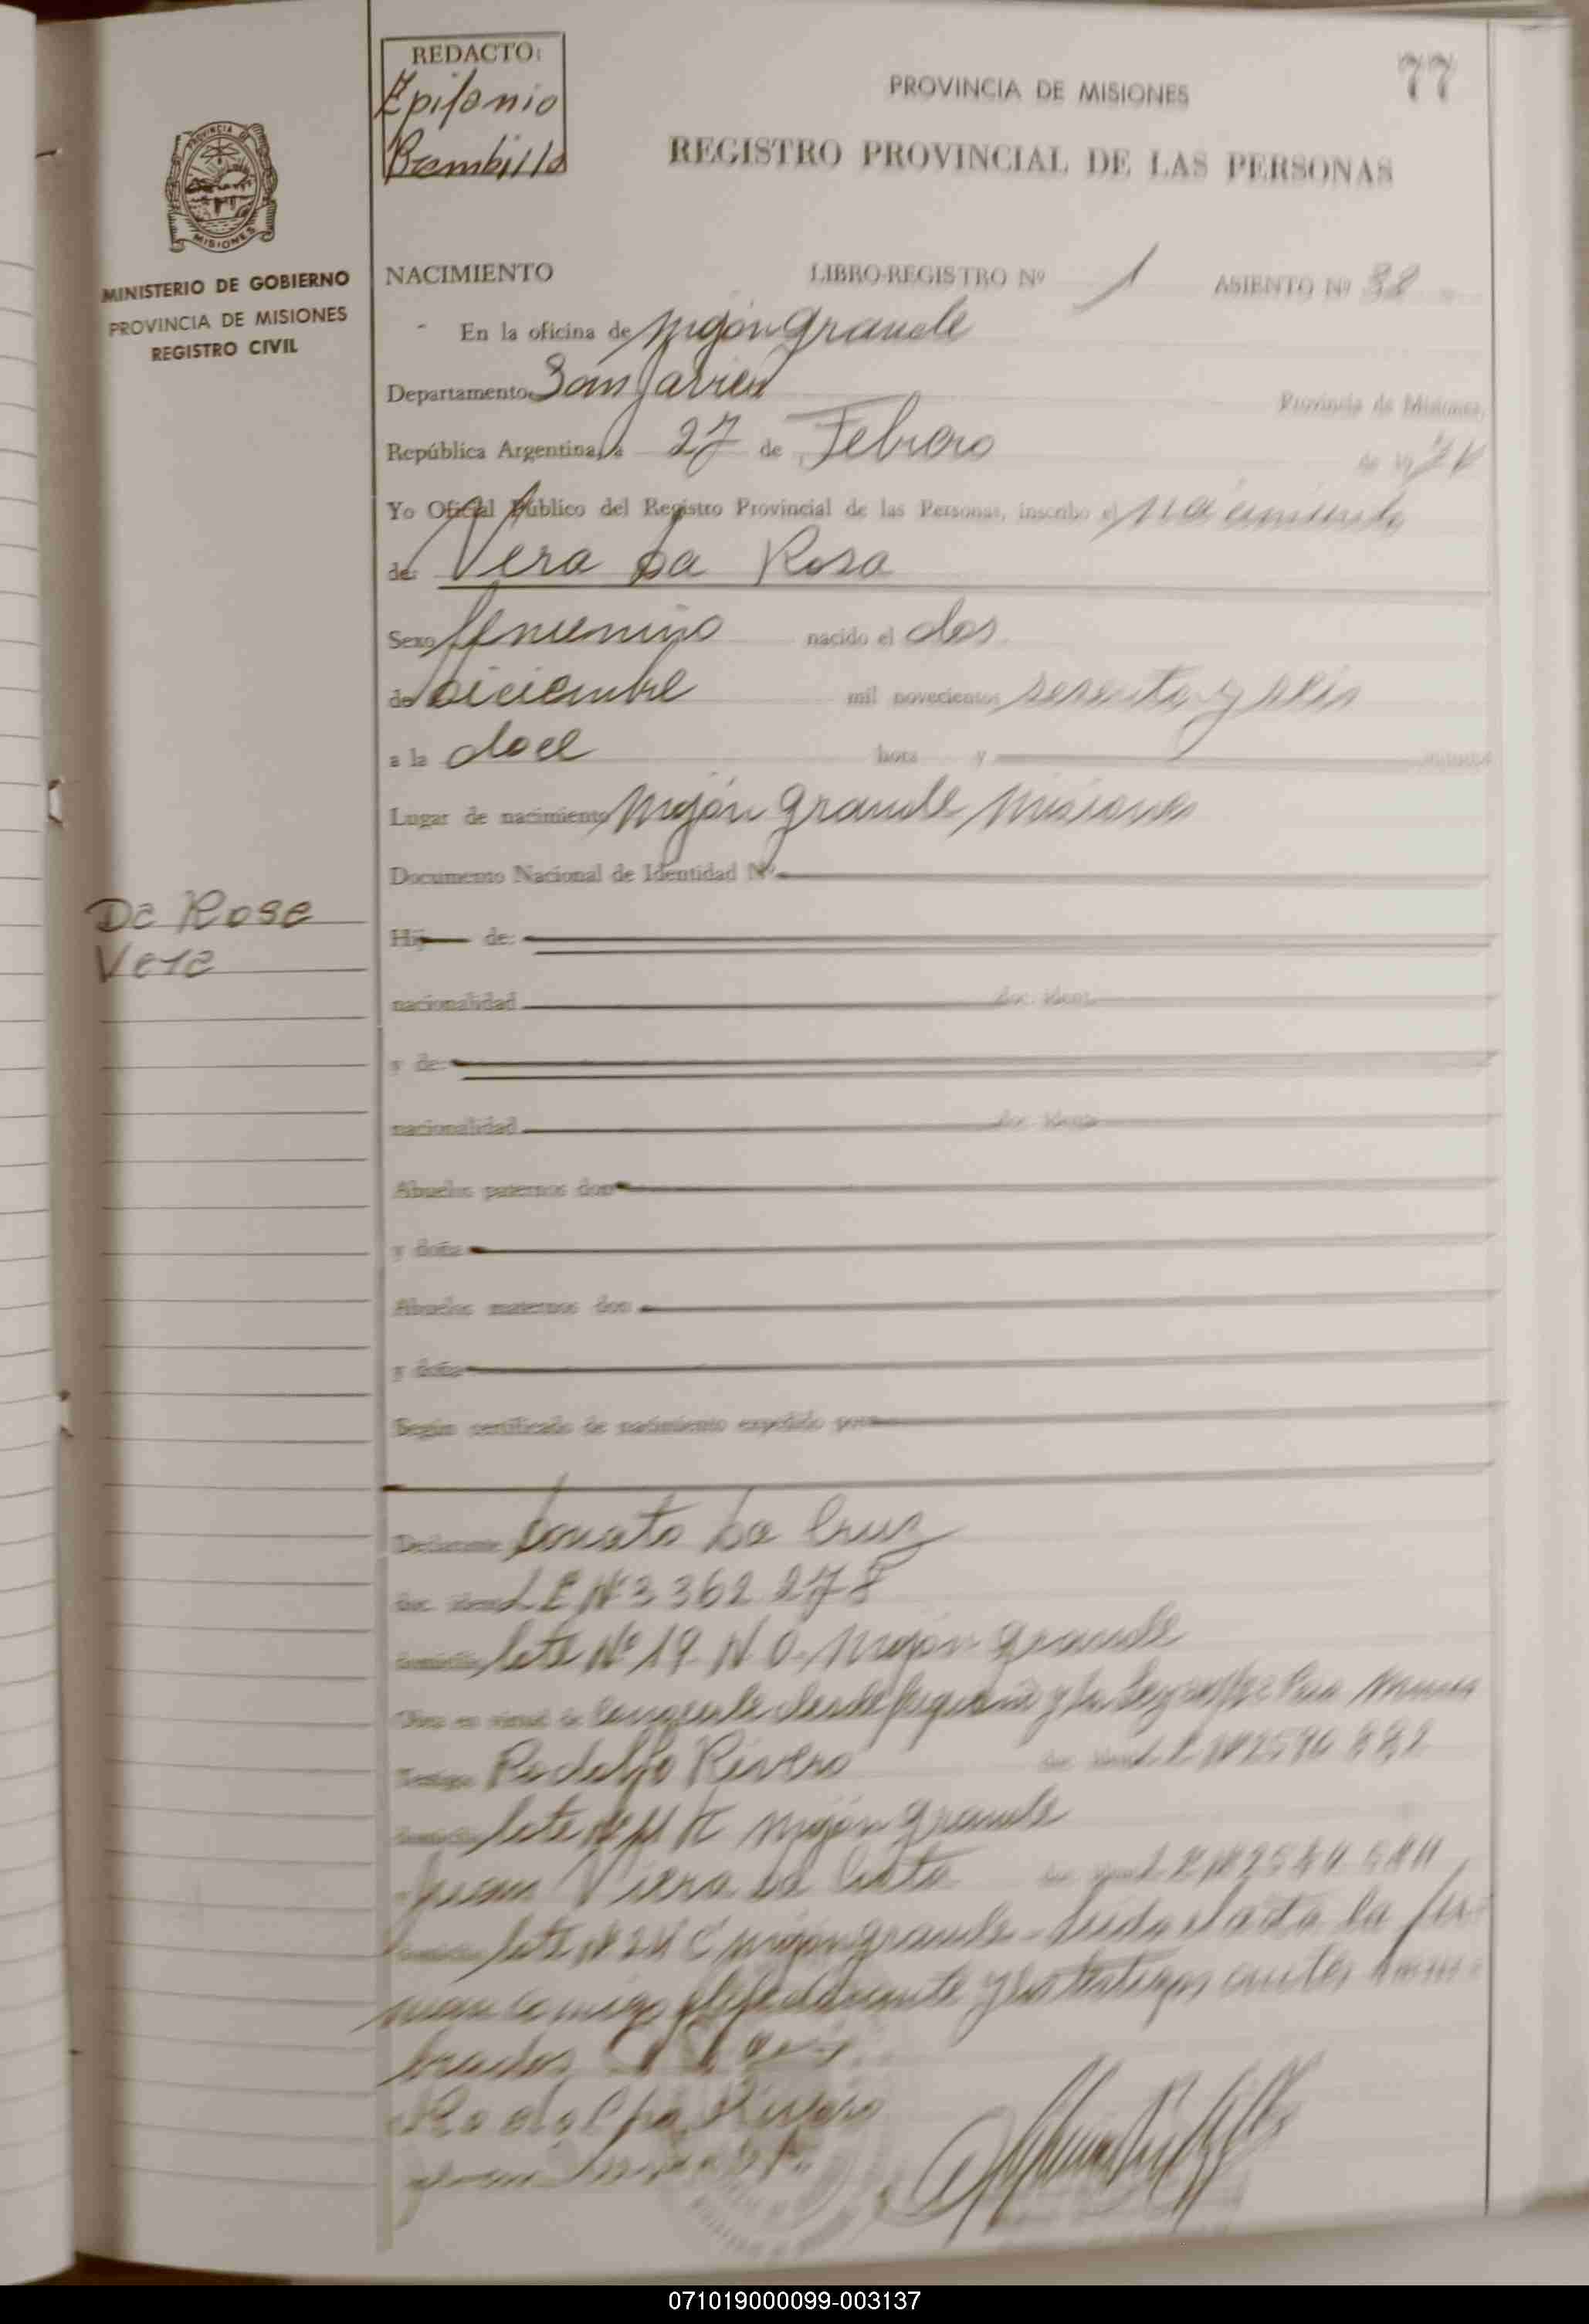 REDACTO:
Epifanio
Brambilla
77
PROVINCIA DE MISIONES
REGISTRO PROVINCIAL DE LAS PERSONAS
PROVINCIA DE
MISIONES
MINISTERIO DE GOBIERNO
PROVINCIA DE MISIONES
REGISTRO CIVIL
NACIMIENTO LIBRO-REGISTRO Nº 1 ASIENTO Nº 38
En la oficina de Mojón Grande
Departamento San Javier Provincia de Misiones,
República Argentina, a 27 de Febrero de 19
Yo Oficial Público del Registro Provincial de las Personas, inscribo el nacimiento
de: Vera Da Rosa
Sexo femenino nacido el dos
de Diciembre mil novecientos sesenta y seis
a la doce hora y minutos
Lugar de nacimiento Mojón Grande Misiones
Documento Nacional de Identidad Nº
De Rose
Vera
Hij de:
nacionalidad doc. ident.
y de:
nacionalidad doc. ident.
Abuelos paternos don
y doña
Abuelos maternos don
y doña
Según certificado de nacimiento expedido por
Declarante Donato Da Cruz
doc. ident. L E Nº 3 362 278
domicilio lote Nº 19 N O. Mojón Grande
Obra en virtud de
Testigos Rodolfo Rivero doc. ident. L E Nº
domicilio lote Mojón Grande
Juan Viera da doc. ident. L E Nº
domicilio lote Nº 24 C Mojón Grande - Leida el acta la fir
man conmigo el declarante y los testigos antes nom
brados
Rodolfo Rivero
071019000099-003137